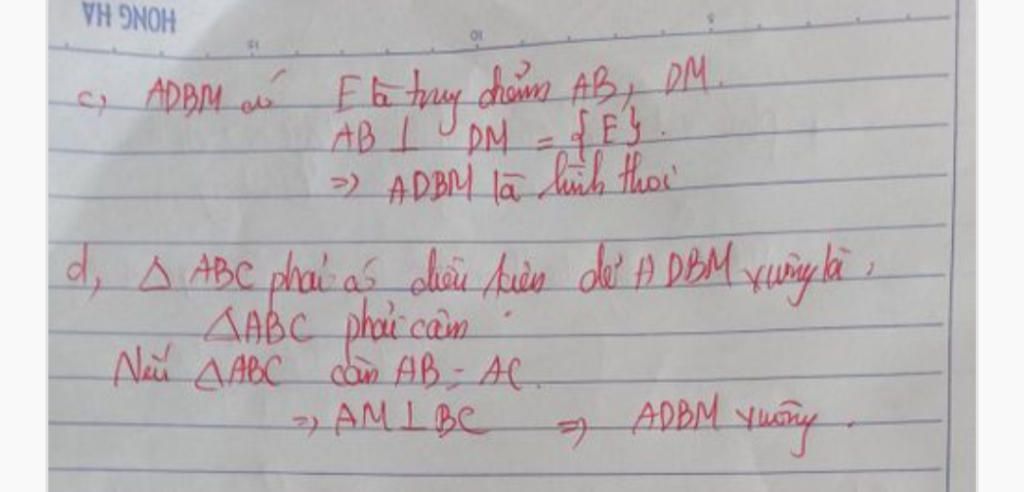 HONG HA
c, ADBM có E là trung điểm AB, DM.
AB ⊥ DM = {E}.
=> ADBM là hình thoi
d, Δ ABC phải có điều kiện để ADBM vuông là,
ΔABC phải cân.
Nếu ΔABC cân AB = AC.
=> AM ⊥ BC => ADBM vuông.